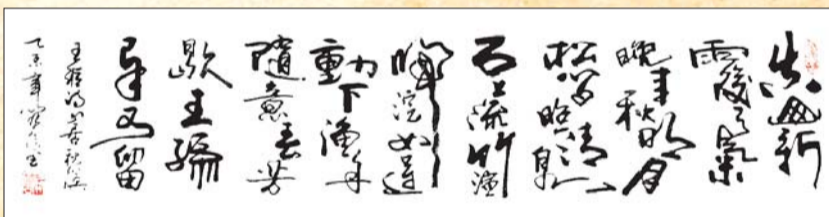 空山新
雨後天氣
晚来秋明月
松间照清泉
石上流竹喧
歸浣女蓮
動下漁舟
隨意春芳
歇王孫
自可留
王維詩山居秋暝
乙未年